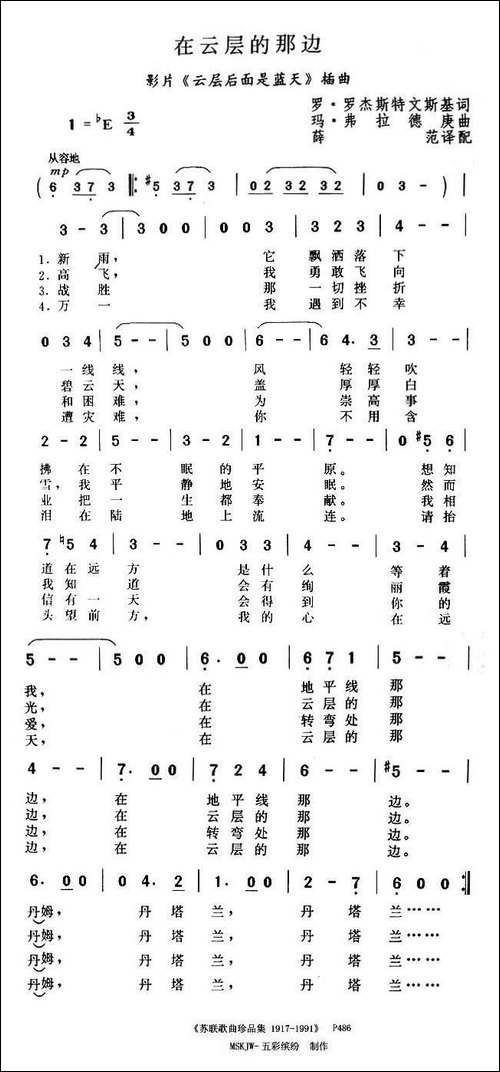 在云层的那边
影片《云层后面是蓝天》插曲
罗·罗杰斯特文斯基词
1 = ♭E 3/4 玛·弗拉德庚曲
薛范译配
从容地
mp
( 6 3 7 3 ‖: #5 3 7 3 | 0 2 3 2 3 2 | 0 3 0 ) |
3 - 3 | 3 0 0 | 0 0 3 | 3 2 3 | 4 - - |
1. 新 雨， 它 飘 洒 落 下
2. 高 飞， 我 勇 敢 飞 向
3. 战 胜 那 一 切 挫 折
4. 万 一 我 遇 到 不 幸
0 3 4 | 5 - - | 5 0 0 | 6 - - | 6 4. 3 | 3 - - |
一 线 线， 风 轻 轻 吹
碧 云 天， 盖 厚 厚 白
和 困 难， 为 崇 高 事
遭 灾 难， 你 不 用 含
2 - 2 | 5 - - | 3 - 2 | 1 - - | 7 - - | 0 #5 6 |
拂 在 不 眠 的 平 原。 想 知
雪，我 平 静 地 安 眠。 然 而
业 把 一 生 都 奉 献。 我 相
泪 在 陆 地 上 流 连。 请 抬
7 ♮5 4 | 3 - - | 0 3 3 | 4 - - | 3 - 4 |
道 在 远 方 是 什 么 等 着
我 知 道 会 有 绚 丽 霞
信 有 一 天 会 得 到 你 的
头 望 前 方， 我 的 心 在 远
5 - - | 5 0 0 | 6. 0 0 | 6 7 1 | 5 - - |
我， 在 地 平 线 那
光， 在 云 层 的 那
爱， 在 转 弯 处 那
天， 在 云 层 的 那
4 - - | 7. 0 0 | 7 2 4 | 6 - - | #5 - - |
边， 在 地 平 线 那 边。
边， 在 云 层 的 那 边。
边， 在 转 弯 处 那 边。
边， 在 云 层 的 那 边。
6. 0 0 | 0 4. 2 | 1. 0 0 | 2 - 7 | 6 0 0 :‖
丹姆， 丹 塔 兰， 丹 塔 兰……
丹姆， 丹 塔 兰， 丹 塔 兰……
丹姆， 丹 塔 兰， 丹 塔 兰……
丹姆， 丹 塔 兰， 丹 塔 兰……
《苏联歌曲珍品集 1917-1991》 P486
MSKJW-五彩缤纷 制作